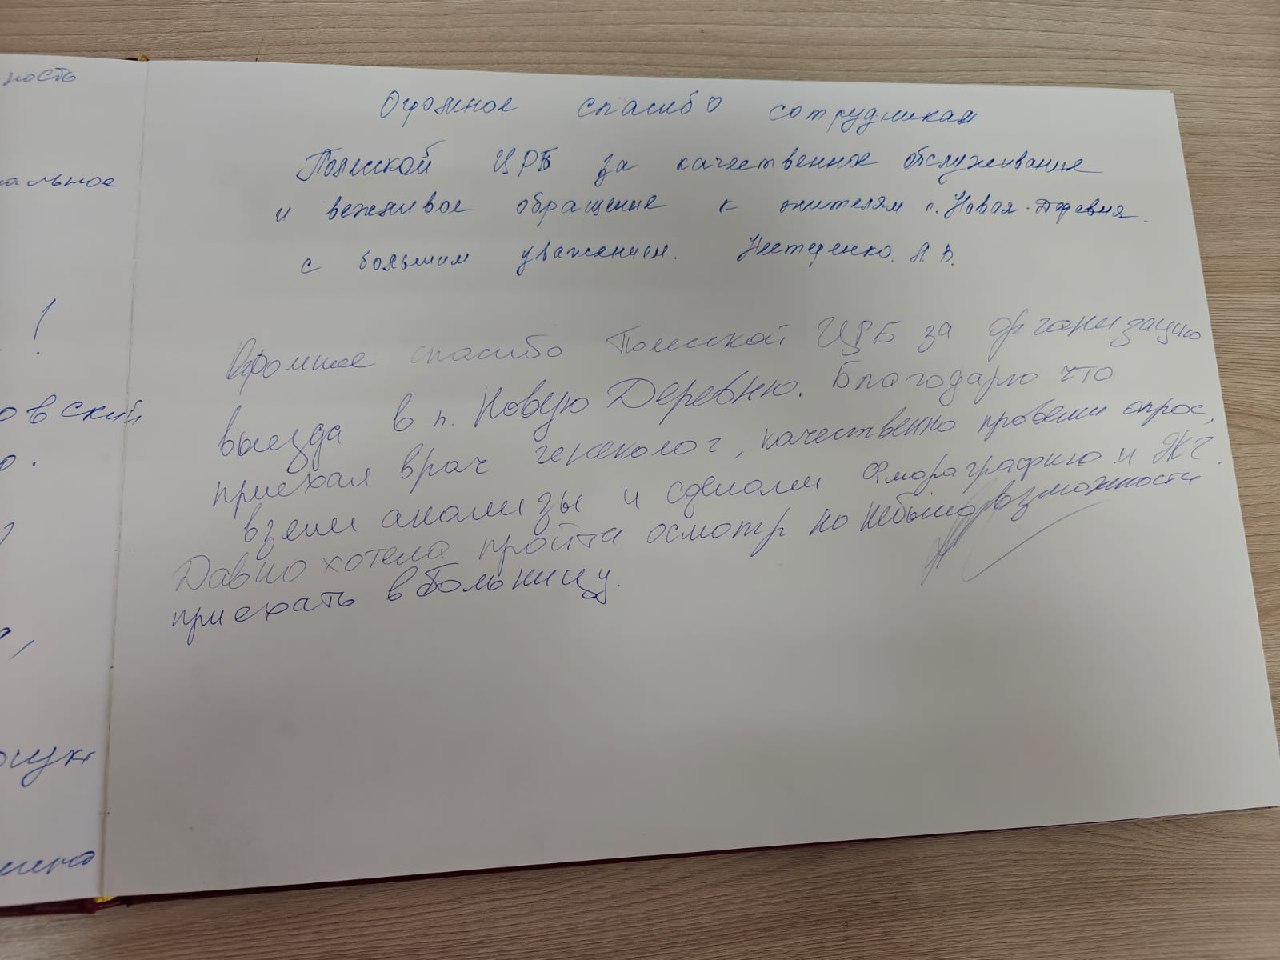 ность
альное
!
овский
Огромное спасибо сотрудникам
Полесской ЦРБ за качественное обслуживание
и вежливое обращение к жителям п. Новая-Деревня.
с большим уважением. А. В.
Огромное спасибо Полесской ЦРБ за организацию
выезда в п. Новую Деревню. Благодарю что
приехал врач генеколог, качественно провели опрос,
взяли анализы и сделали Флюраграфию и ЭКГ.
Давно хотела пройти осмотр но небыло возможности
приехать в больницу.